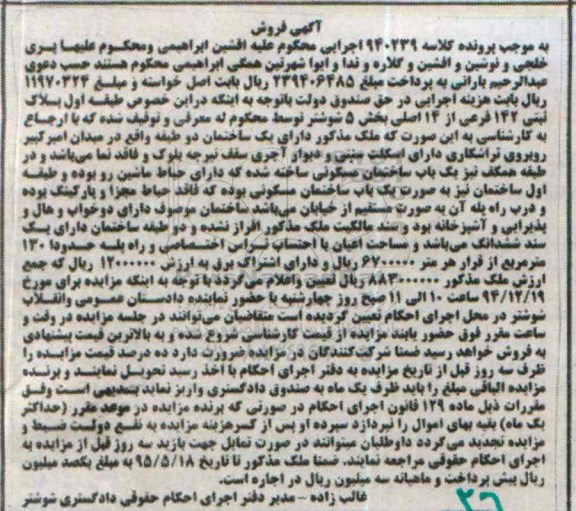 آگهی فروش
به موجب پرونده کلاسه ۹۴۰۲۳۹ اجرایی محکوم علیه افشین ابراهیمی ومحکوم علیها پری
خلجی و نوشین و افشین و گلاره و ندا و ایوا شهرتین همگی ابراهیمی محکوم هستند حسب دعوی
عبدالرحیم بارانی به پرداخت مبلغ ۲۳۹۴۰۶۴۸۵ ریال بابت اصل خواسته و مبلغ ۱۱۹۷۰۳۲۴
ریال بابت هزینه اجرایی در حق صندوق دولت باتوجه به اینکه دراین خصوص طبقه اول پلاک
ثبتی ۱۴۲ فرعی از ۱۴ اصلی بخش ۵ شوشتر توسط محکوم له معرفی و توقیف شده که با ارجاع
به کارشناسی به این صورت که ملک مذکور دارای یک ساختمان دو طبقه واقع در میدان امیرکبیر
روبروی تراشکاری دارای اسکلت بتنی و دیوار آجری سقف تیرچه بلوک و فاقد نما می‌باشد و در
طبقه همکف نیز یک باب ساختمان مسکونی ساخته شده که دارای حیاط ماشین رو بوده و طبقه
اول ساختمان نیز به صورت یک باب ساختمان مسکونی بوده که فاقد حیاط مجزا و پارکینگ بوده
و درب راه پله آن به صورت مستقیم از خیابان می‌باشد ساختمان موصوف دارای دوخواب و هال و
پذیرایی و آشپزخانه بود وسند مالکیت ملک مذکور افراز نشده و دو طبقه ساختمان دارای یک
سند ششدانگ می‌باشد و مساحت اعیان با احتساب تراس اختصاصی و راه پله حدودا ۱۳۰
مترمربع از قرار هر متر ۶۷۰۰۰۰۰ ریال و دارای اشتراک برق به ارزش ۱۲۰۰۰۰۰۰ ریال که جمع
ارزش ملک مذکور ۸۸۳۰۰۰۰۰۰ ریال تعیین واعلام می‌گردد با توجه به اینکه مزایده برای مورخ
۹۴/۱۲/۱۹ ساعت ۱۰ الی ۱۱ صبح روز چهارشنبه با حضور نماینده دادستان عمومی وانقلاب
شوشتر در محل اجرای احکام تعیین گردیده است متقاضیان می‌توانند در جلسه مزایده در وقت و
ساعت مقرر فوق حضور یابند مزایده از قیمت کارشناسی شروع شده و به بالاترین قیمت پیشنهادی
به فروش خواهد رسید ضمنا شرکت‌کنندگان در مزایده ضرورت دارد ده درصد قیمت مزایده را
ظرف سه روز قبل از تاریخ مزایده به دفتر اجرای احکام با اخذ رسید تحویل نمایند و برنده
مزایده الباقی مبلغ را باید ظرف یک ماه به صندوق دادگستری واریز نماید بندیهی است وفق
مقررات ذیل ماده ۱۲۹ قانون اجرای احکام در صورتی که برنده مزایده در موعد مقرر (حداکثر
یک ماه) بقیه بهای اموال را نپردازد سپرده او پس از کسرهزینه مزایده به نفع دولت ضبط و
مزایده تجدید می‌گردد داوطلبان میتوانند در صورت تمایل جهت بازید سه روز قبل از مزایده به
اجرای احکام حقوقی مراجعه نمایند. ضمنا ملک مذکور تا تاریخ ۹۵/۵/۱۸ به مبلغ یکصد میلیون
ریال پیش پرداخت و ماهیانه سه میلیون ریال در اجاره است.
غالب زاده - مدیر دفتر اجرای احکام حقوقی دادگستری شوشتر